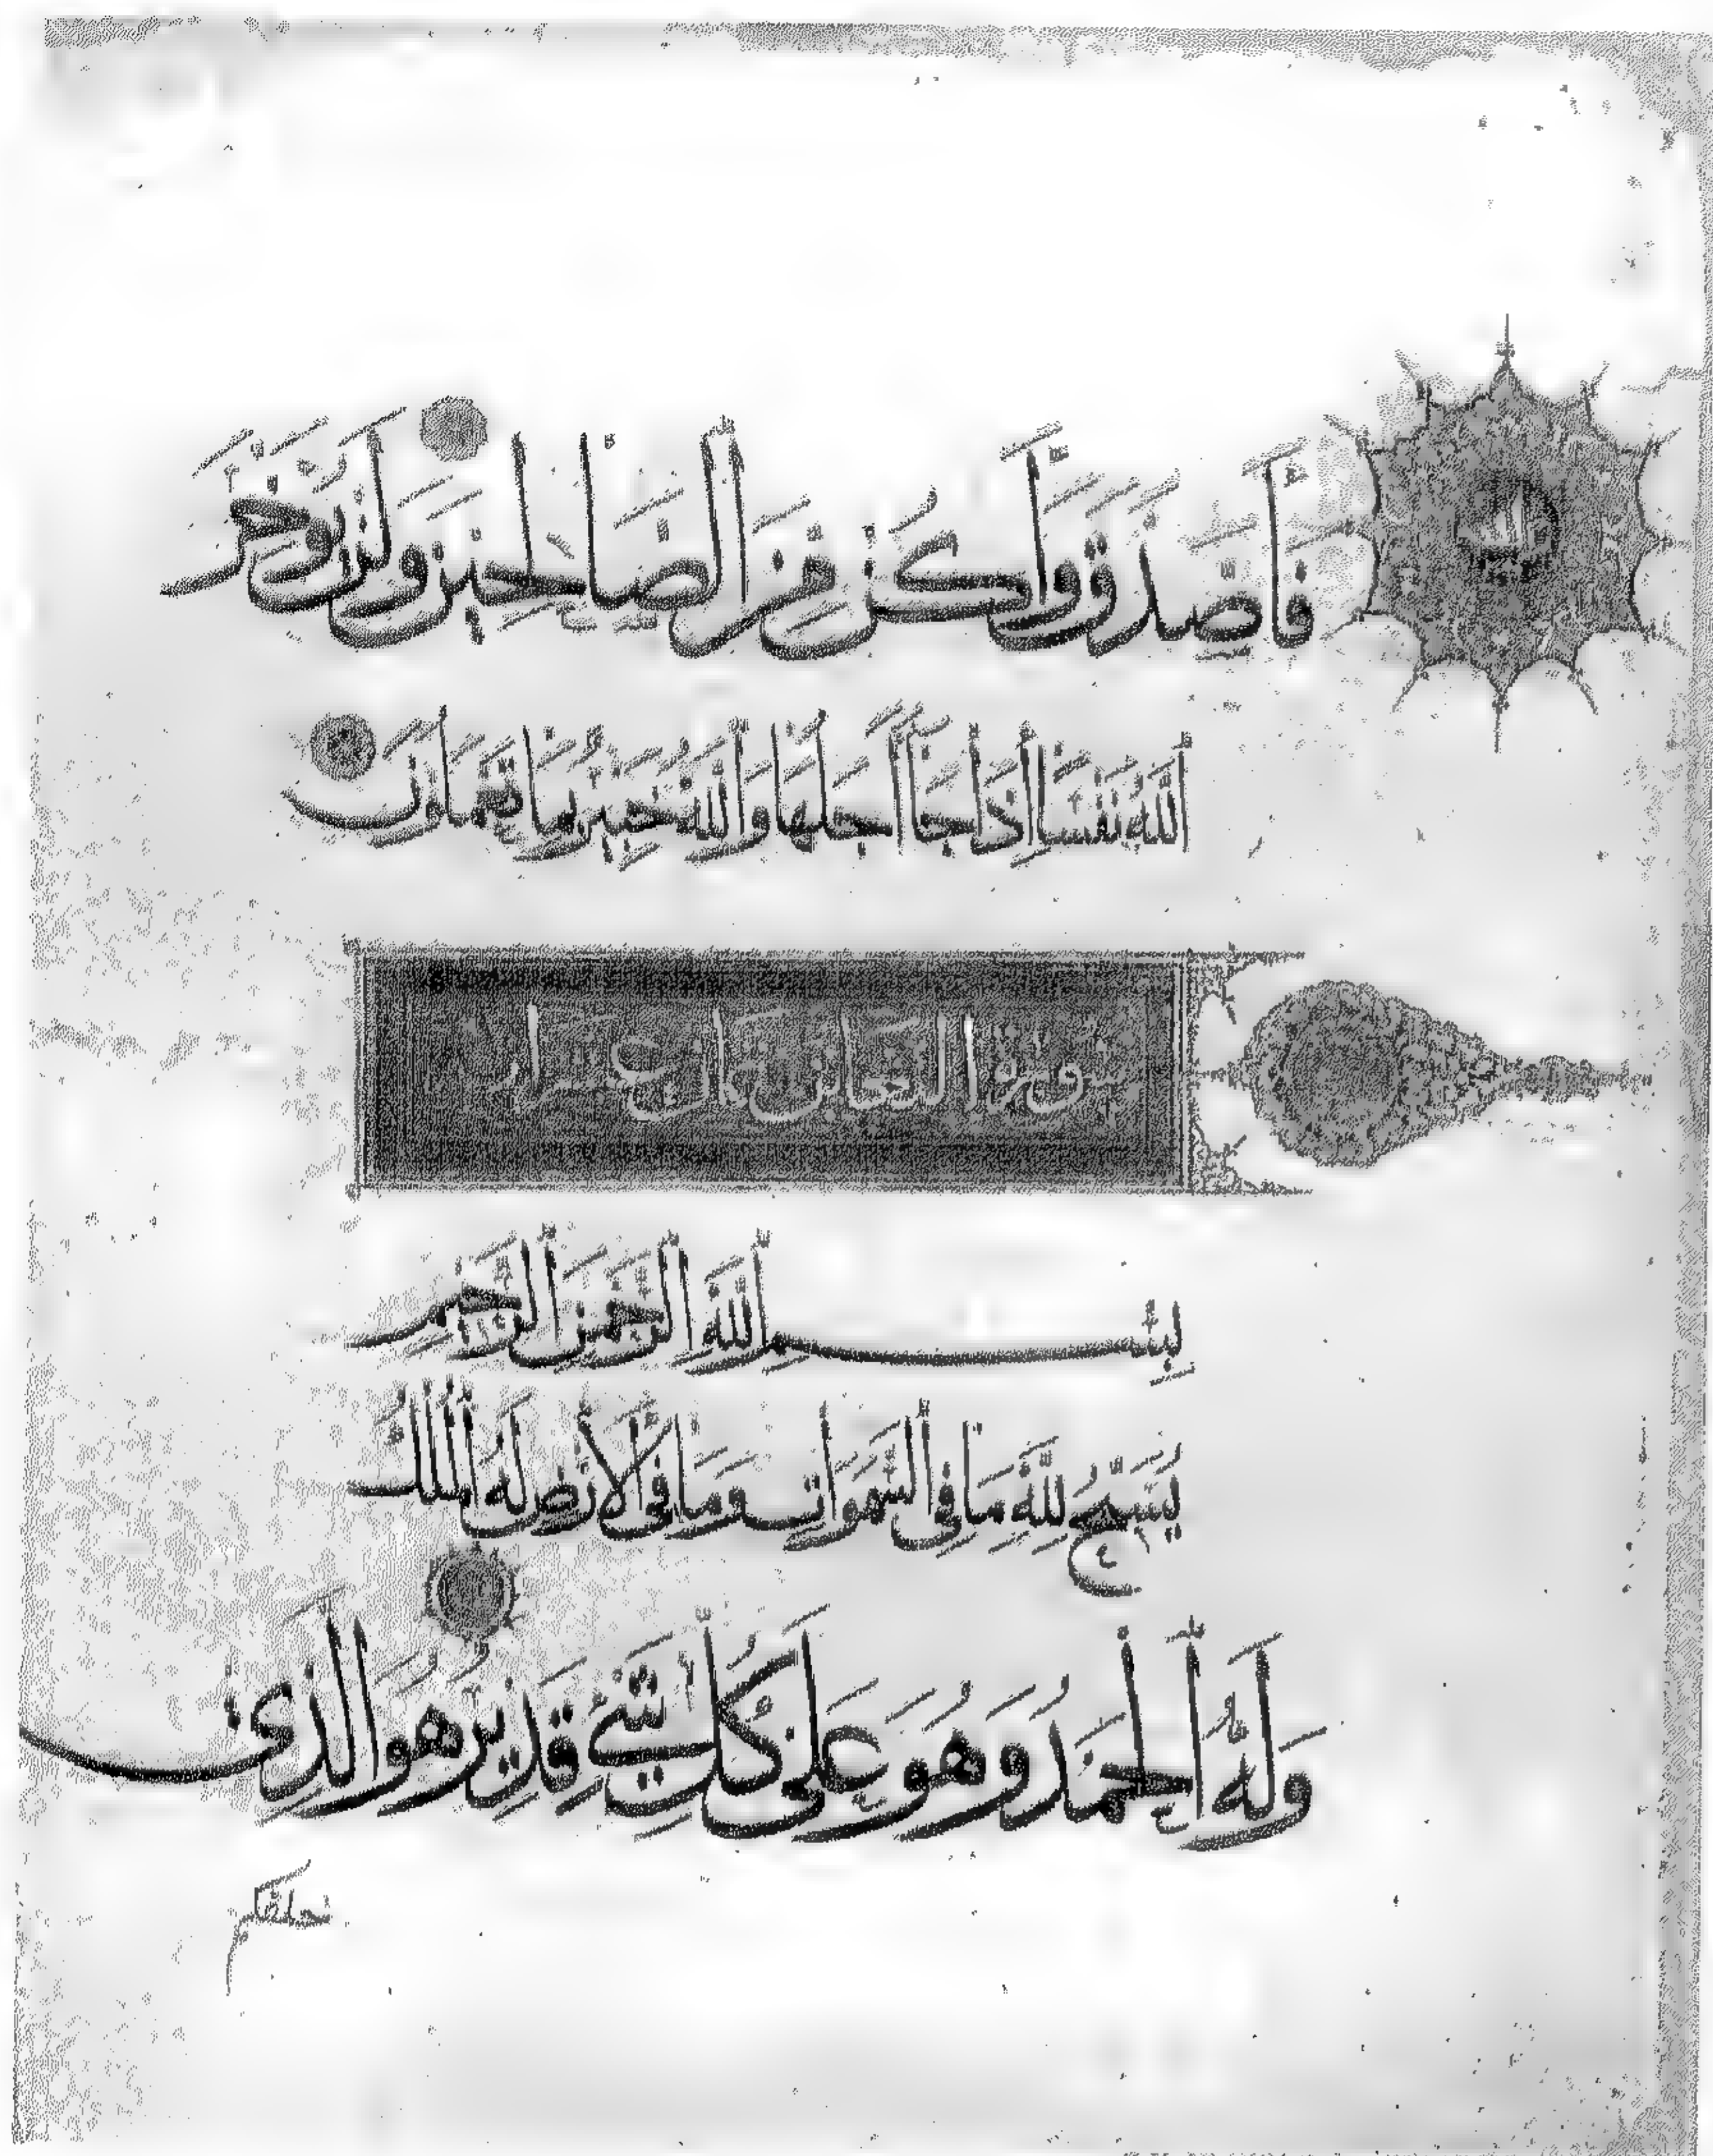 فَأَصَّدَّقَ وَأَكُنْ مِنَ الصَّالِحِينَ وَلَنْ يُؤَخِّرَ
اللَّهُ نَفْسًا إِذَا جَاءَ أَجَلُهَا وَاللَّهُ خَبِيرٌ بِمَا تَعْمَلُونَ
سورة التغابن ثمان عشرة اية
بِسْمِ اللَّهِ الرَّحْمَنِ الرَّحِيمِ
يُسَبِّحُ لِلَّهِ مَا فِي السَّمَوَاتِ وَمَا فِي الْأَرْضِ لَهُ الْمُلْكُ
وَلَهُ الْحَمْدُ وَهُوَ عَلَى كُلِّ شَيْءٍ قَدِيرٌ هُوَ الَّذِي
خلقكم